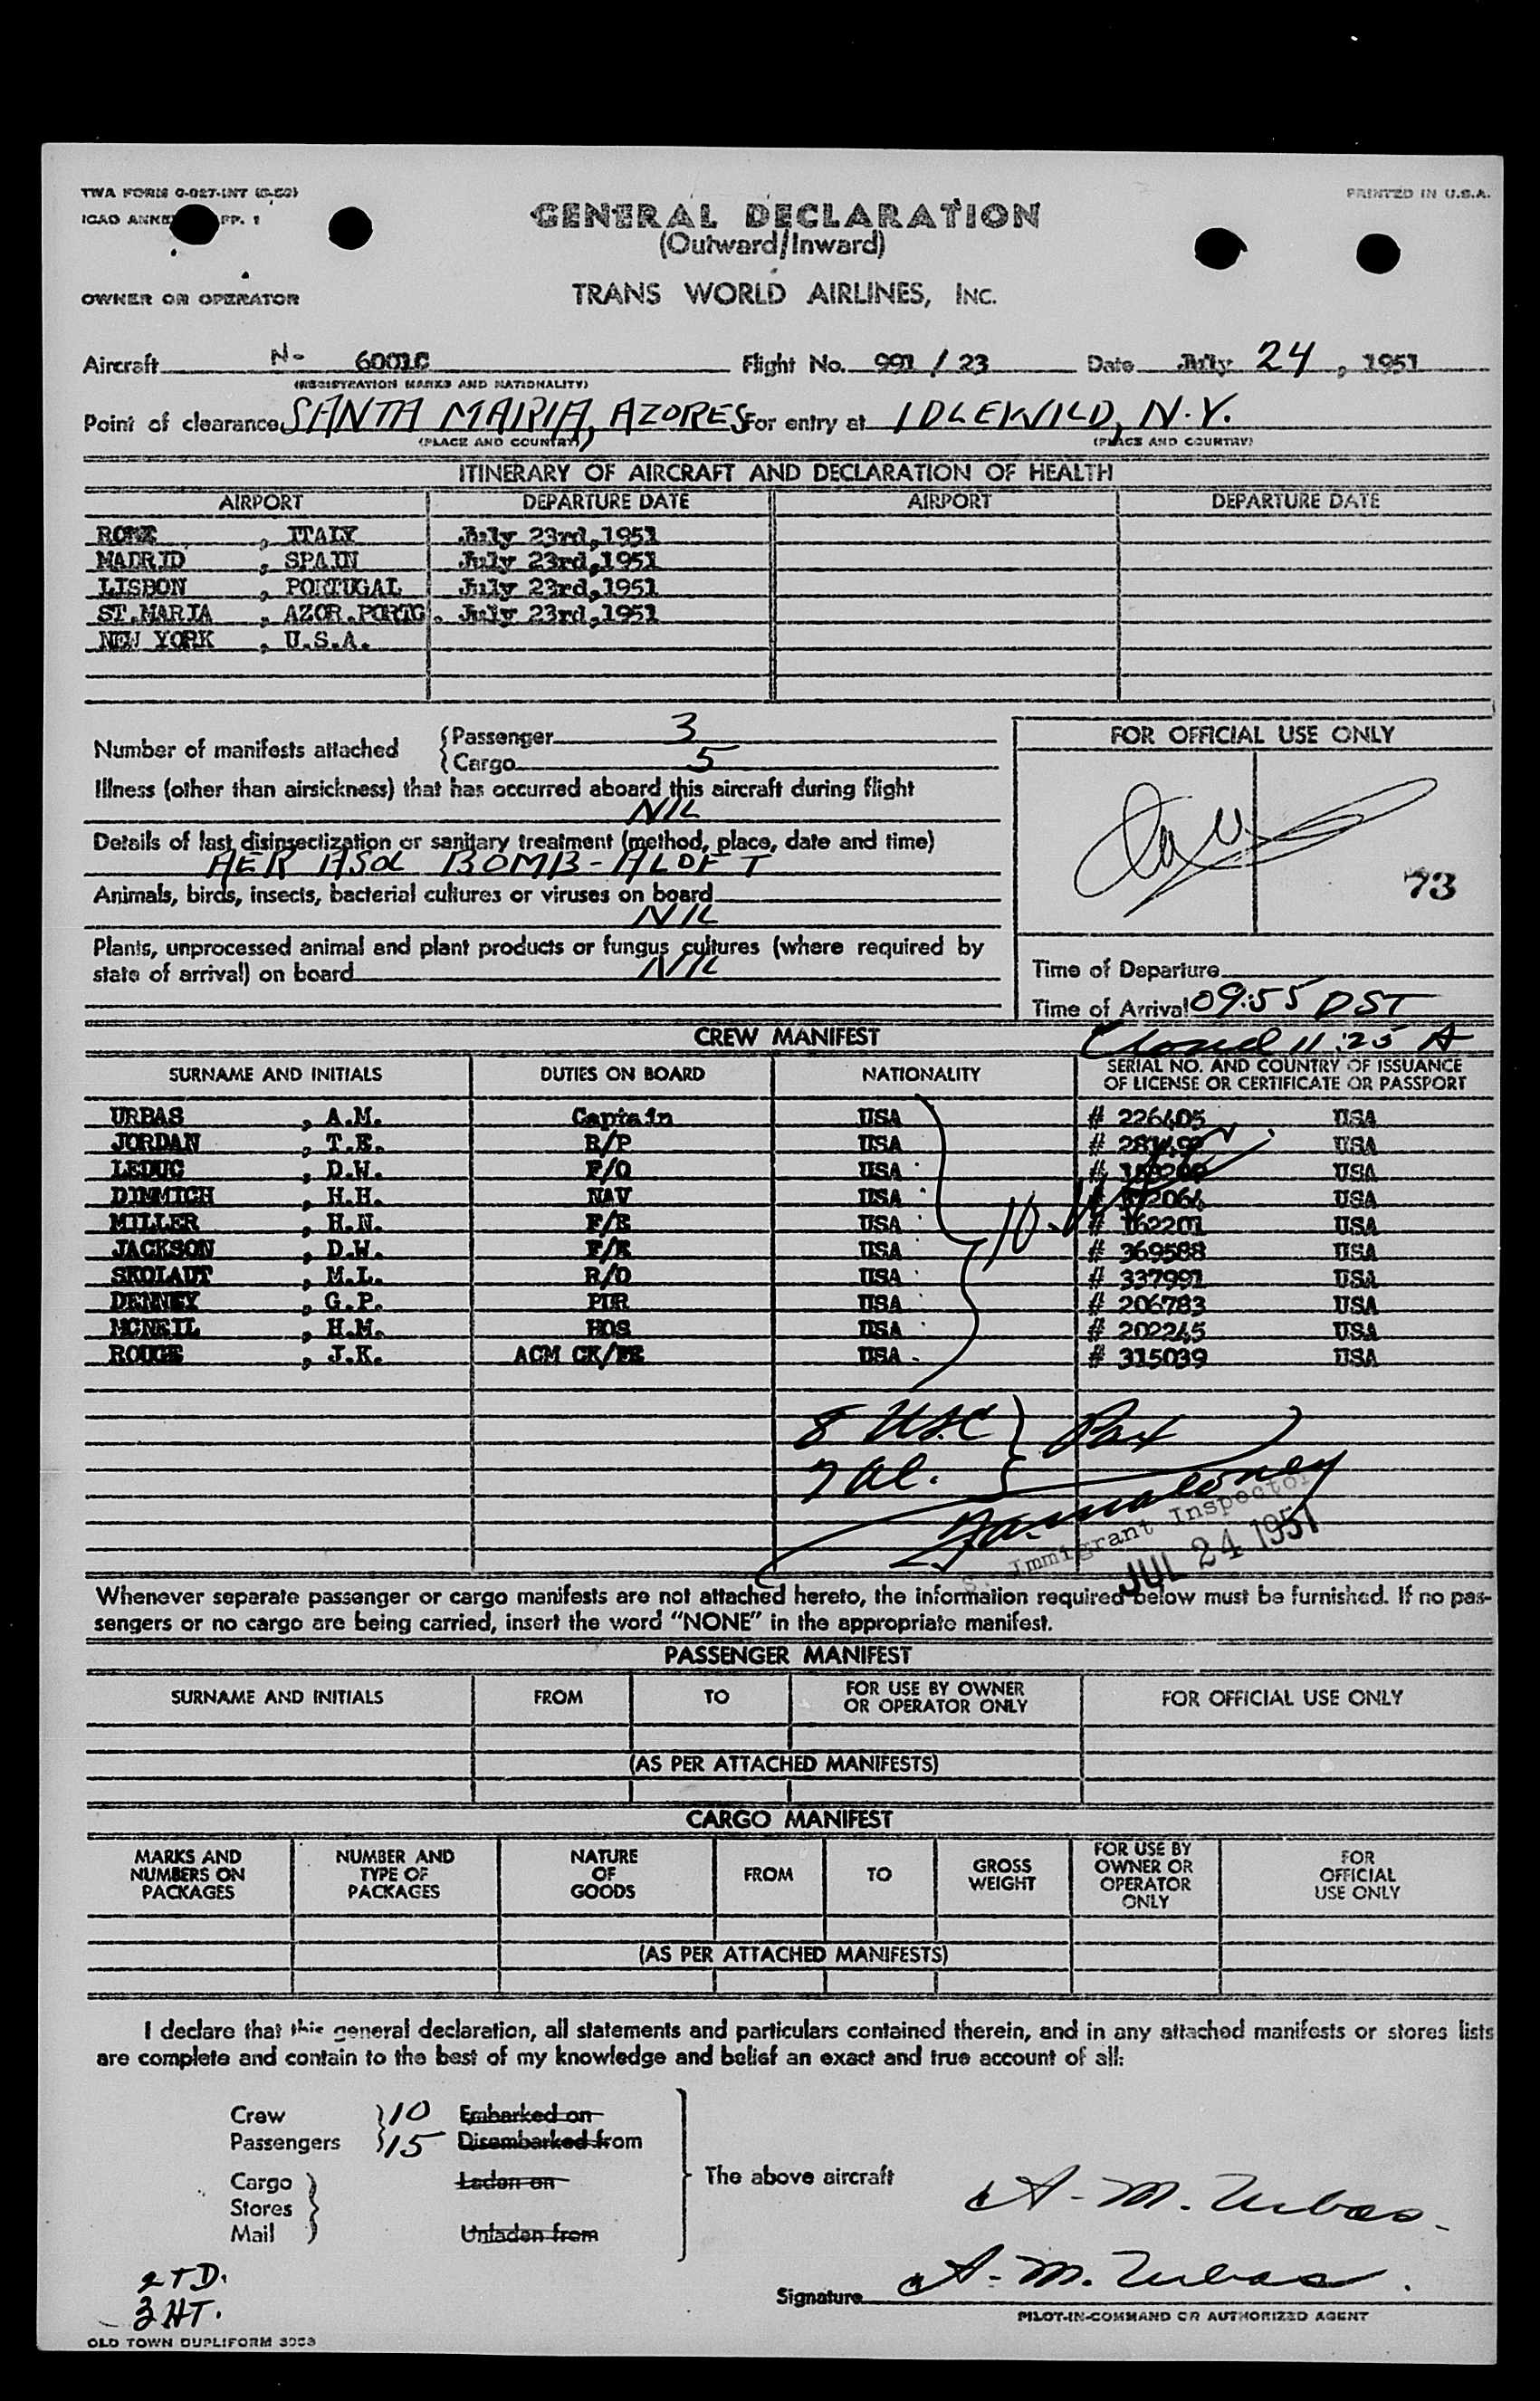 TWA FORM O-027-INT
PRINTED IN U.S.A.
ICAO P. 1
GENERAL DECLARATION
(Outward/Inward)
OWNER OR OPERATOR
TRANS WORLD AIRLINES, INC.
Aircraft N- 6001C Flight No. 991 / 23 Date July 24, 1951
(REGISTRATION MARKS AND NATIONALITY)
Point of clearance SANTA MARIA, AZORES For entry at IDLEWILD, N.Y.
(PLACE AND COUNTRY) (PLACE AND COUNTRY)
ITINERARY OF AIRCRAFT AND DECLARATION OF HEALTH
AIRPORT DEPARTURE DATE AIRPORT DEPARTURE DATE
ROME , ITALY July 23rd,1951
MADRID , SPAIN July 23rd,1951
LISBON , PORTUGAL July 23rd,1951
ST.MARIA , AZOR.PORTG. July 23rd,1951
NEW YORK , U.S.A.
Number of manifests attached
Passenger 3
Cargo 5
FOR OFFICIAL USE ONLY
Illness (other than airsickness) that has occurred aboard this aircraft during flight
NIL
Details of last disinsectization or sanitary treatment (method, place, date and time)
AERASOL BOMB-ALOFT
73
Animals, birds, insects, bacterial cultures or viruses on board
NIL
Plants, unprocessed animal and plant products or fungus cultures (where required by
state of arrival) on board NIL
Time of Departure
Time of Arrival 09:55 DST
Closed 11:25 A
CREW MANIFEST
SURNAME AND INITIALS DUTIES ON BOARD NATIONALITY SERIAL NO. AND COUNTRY OF ISSUANCE
OF LICENSE OR CERTIFICATE OR PASSPORT
URBAS , A.M. Captain USA # 226405 USA
JORDAN , T.E. R/P USA # USA
LEDUC , D.W. F/O USA # USA
DIMMICH , H.H. NAV USA USA
MILLER , H.N. F/E USA # 162201 USA
JACKSON , D.W. F/E USA # 369588 USA
SKOLAUT , M.L. R/O USA # 337991 USA
DENNEY , G.P. PUR USA # 206783 USA
MCNEIL , H.M. HOS USA # 202245 USA
ROUGE , J.K. ACM CK/FE USA # 315039 USA
10
8 USC } Pax
7 Al.
Immigrant Inspector
JUL 24 1951
Whenever separate passenger or cargo manifests are not attached hereto, the information required below must be furnished. If no pas-
sengers or no cargo are being carried, insert the word "NONE" in the appropriate manifest.
PASSENGER MANIFEST
SURNAME AND INITIALS FROM TO FOR USE BY OWNER
OR OPERATOR ONLY FOR OFFICIAL USE ONLY
(AS PER ATTACHED MANIFESTS)
CARGO MANIFEST
MARKS AND
NUMBERS ON
PACKAGES
NUMBER AND
TYPE OF
PACKAGES
NATURE
OF
GOODS
FROM
TO
GROSS
WEIGHT
FOR USE BY
OWNER OR
OPERATOR
ONLY
FOR
OFFICIAL
USE ONLY
(AS PER ATTACHED MANIFESTS)
I declare that this general declaration, all statements and particulars contained therein, and in any attached manifests or stores lists
are complete and contain to the best of my knowledge and belief an exact and true account of all:
Crew 10 Embarked on
Passengers 15 Disembarked from
Cargo Laden on
Stores
Mail Unladen from
The above aircraft
A. M. Urbas.
2 TD.
3 HT.
Signature A. M. Urbas.
PILOT-IN-COMMAND OR AUTHORIZED AGENT
OLD TOWN DUPLIFORM 3053